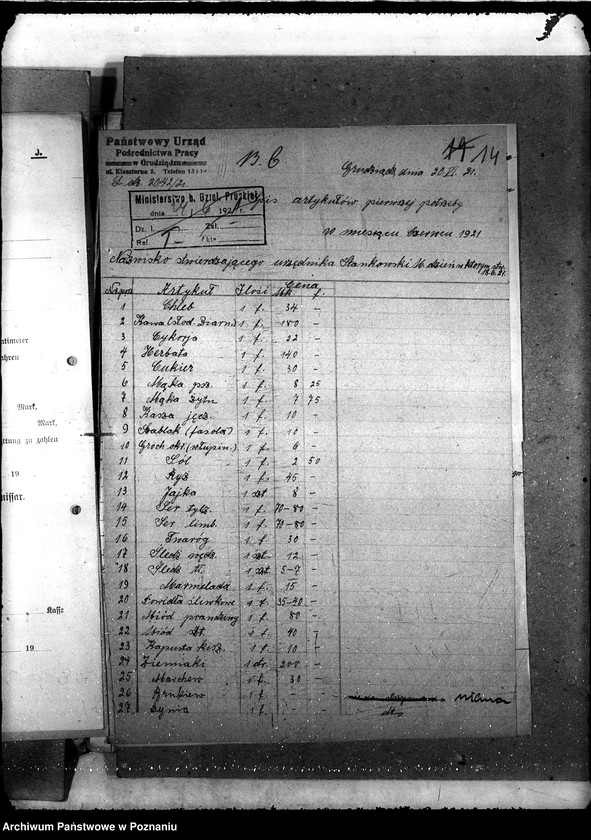 Państwowy Urząd
Pośrednictwa Pracy
w Grudziądzu
ul. Klasztorna 5. Telefon
L. dz. 2042/21
B. C
14 14
Grudziądz, dnia 20.VI. 21.
Ministerstwo b. Dziel. Pruskiej
dnia 192
Dz. I. Zał.
Ref.
Spis artykułów pierwszej potrzeby
w miesiącu Czerwcu 1921
Nazwisko stwierdzającego urzędnika Stankowski 16 dzień w którym stw. 18.6.21.
Artykuł Ilość Cena
Mk f.
1 Chleb 1 f. 34 -
2 Kawa (słod. Ziarn.) 1 f. 180 -
3 Cykorja 1 f. 22 -
4 Herbata 1 f. 140 -
5 Cukier 1 f. 30 -
6 Mąka psz. 1 f. 8 25
7 Mąka żytn. 1 f. 7 75
8 Kasza jęcz. 1 f. 10 -
9 Szablak (fasola) 1 f. 10 -
10 Groch okr. (włupin.) 1 f. 6 -
11 Sól 1 f. 2 50
12 Ryż 1 f. 45 -
13 Jajka 1 szt 8 -
14 Ser tylż. 1 f. 70-80 -
15 Ser limb. 1 f. 70-80 -
16 Twaróg 1 f. 30 -
17 Śledź wędz. 1 szt. 12 -
18 Śledź 1 szt 5-7 -
19 Marmelada 1 f. 15 -
20 Powidła śliwkowe 1 f. 35-40 -
21 Miód prawdziwy 1 f. 80 -
22 Miód szt. 1 f. 40 -
23 Kapusta kisz. 1 f. 10 -
24 Ziemiaki 1 ctr. 200 -
25 Marchew 1 f. 30 -
26 Brukiew 1 f. - -
27 Dynia 1 f. - - dto
J.
Mark,
Mark,
ttung zu zahlen
19
missar.
Kasse
19
Archiwum Państwowe w Poznaniu